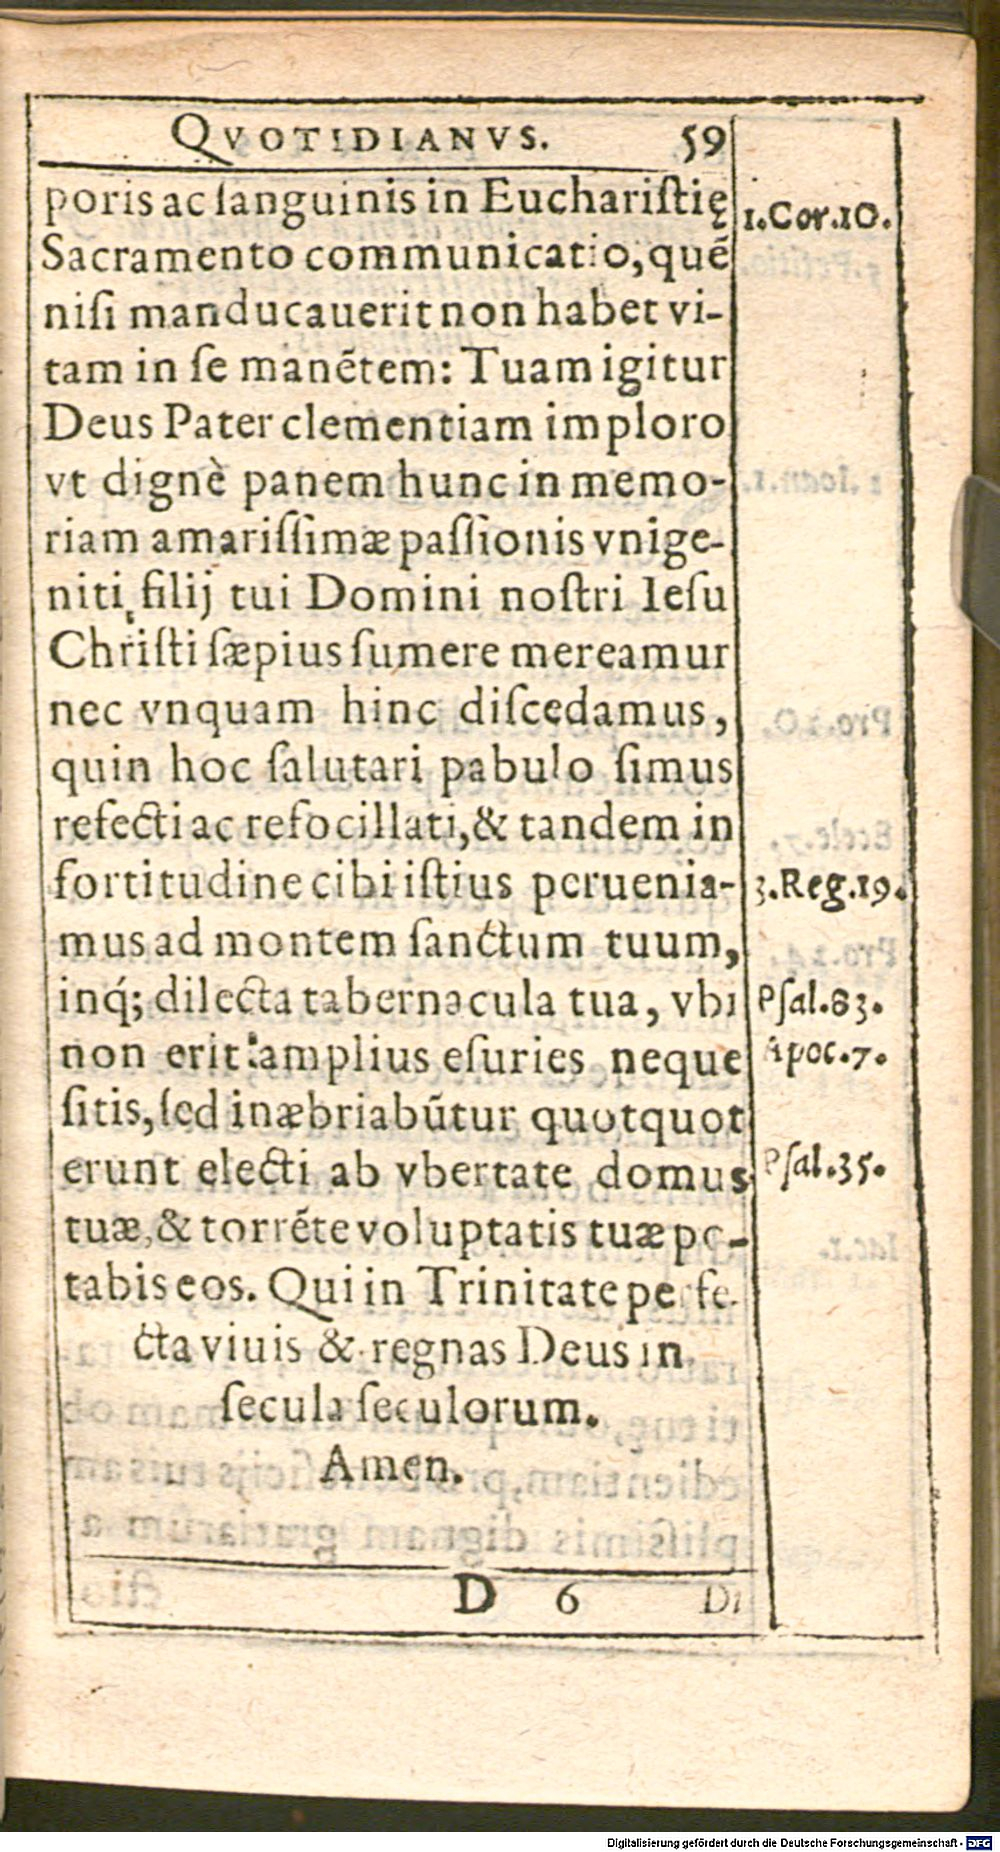 QVOTIDIANVS. 59
poris ac ſanguinis in Euchariſtię
Sacramento communicatio, quē
niſi manducauerit non habet vi-
tam in ſe manētem: Tuam igitur
Deus Pater clementiam imploro
vt dignè panem hunc in memo-
riam amariſſimæ paſſionis vnige-
niti filij tui Domini noſtri Ieſu
Chriſti ſæpius ſumere mereamur
nec vnquam hinc diſcedamus,
quin hoc ſalutari pabulo ſimus
refecti ac refocillati, & tandem in
fortitudine cibi iſtius peruenia-
mus ad montem ſanctum tuum,
inq́; dilecta tabernacula tua, vbi
non erit amplius eſuries neque
ſitis, ſed inæbriabūtur quotquot
erunt electi ab vbertate domus
tuæ, & torrēte voluptatis tuæ po-
tabis eos. Qui in Trinitate perfe-
cta viuis & regnas Deus in
ſecula ſeculorum.
Amen.
D 6 Di
1.Cor.10.
3.Reg.19.
Pſal.83.
Apoc.7.
Pſal.35.
Digitalisierung gefördert durch die Deutsche Forschungsgemeinschaft - DFG